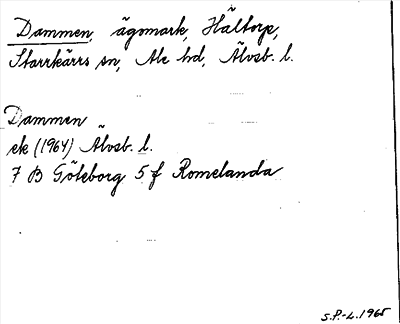 Dammen, ägomark, Hältorp,
Starrkärrs sn, Ale hd, Älvsb. l.
Dammen
ek (1964) Älvsb. l.
7 B Göteborg 5 f Romelanda
S.P.-L. 1965